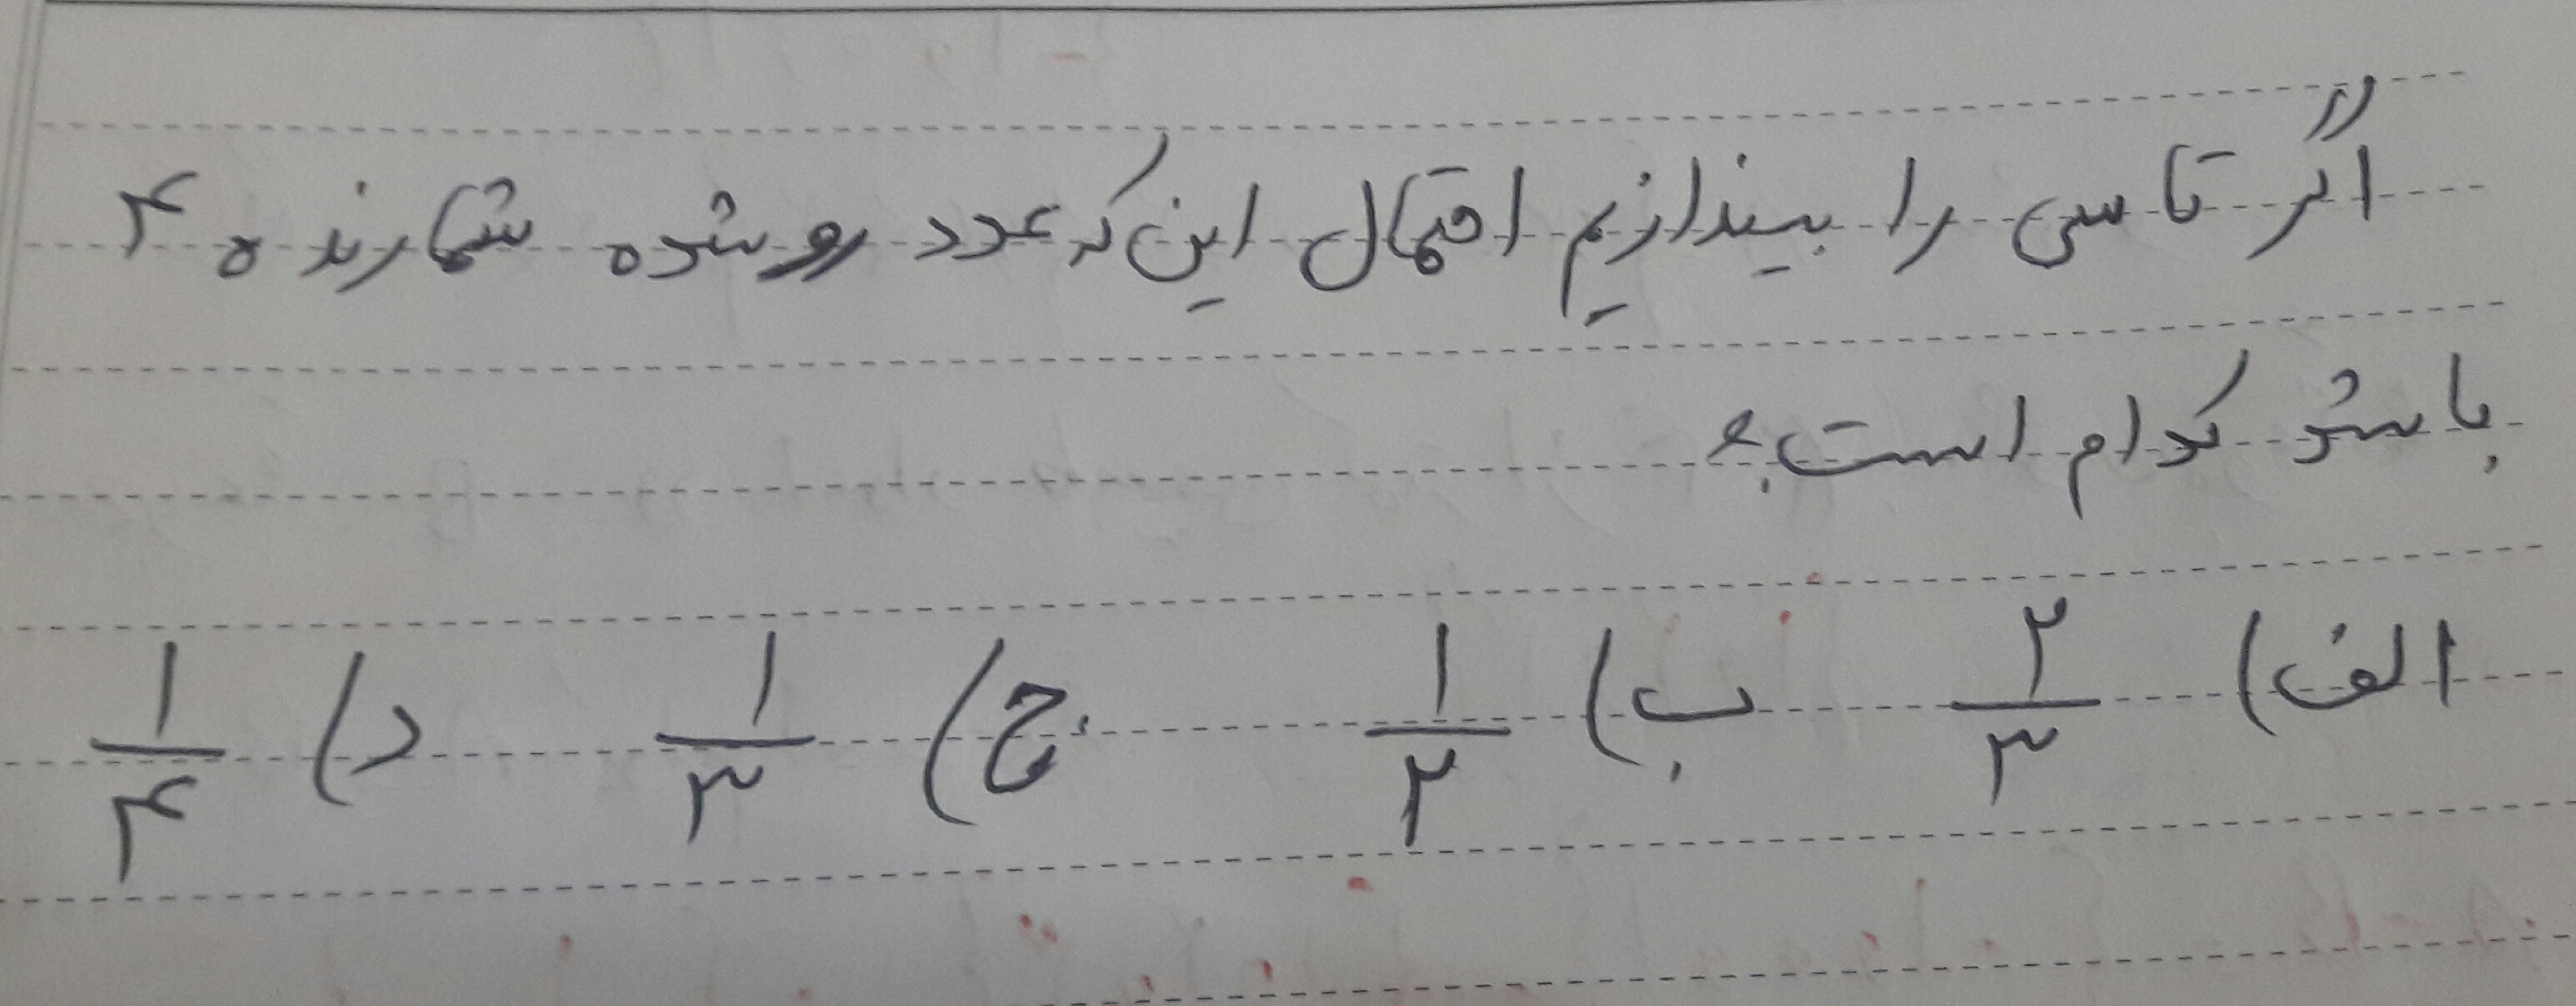 اگر تاسی را بیندازیم احتمال این که عدد رو شده شمارنده ۴
باشد کدام است؟
الف) ۲/۳ ب) ۱/۲ ج) ۱/۳ د) ۱/۴